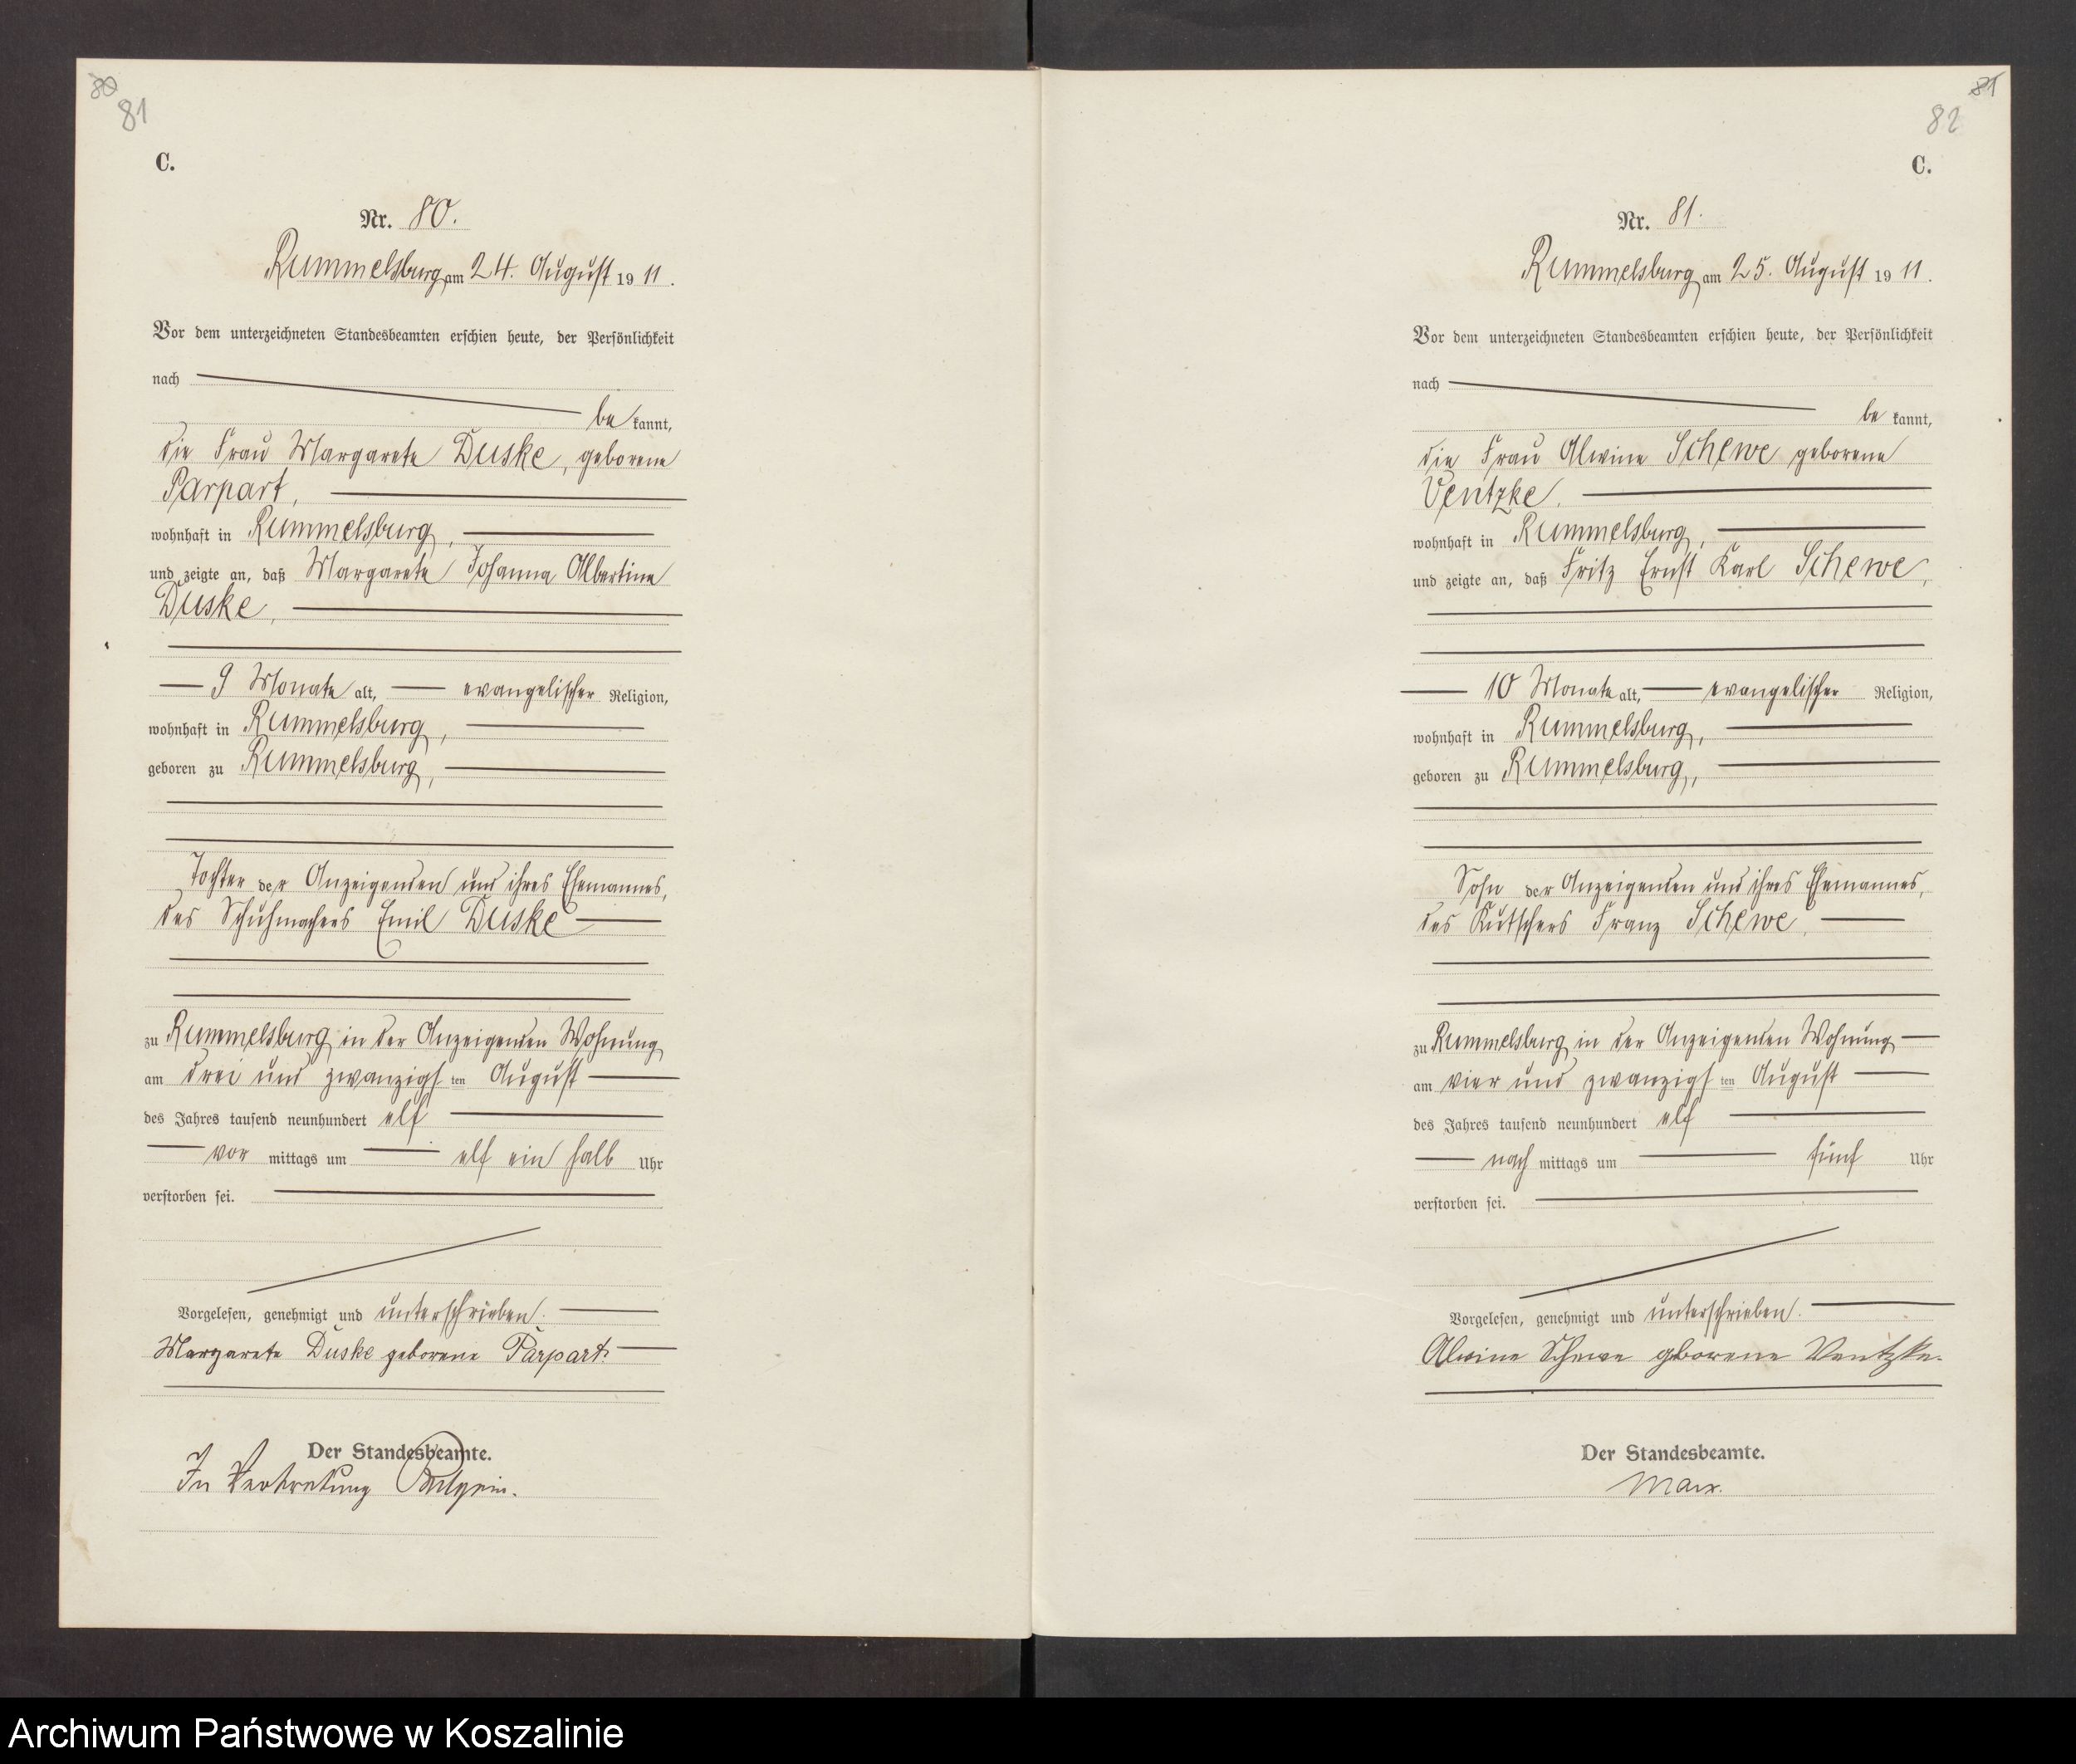 80
81
C.
Nr. 80.
Rummelsburg am 24. August 1911.
Vor dem unterzeichneten Standesbeamten erschien heute, der Persönlichkeit
nach
be kannt,
die Frau Margarete Duske, geborene
Parpart,
wohnhaft in Rummelsburg,
und zeigte an, daß Margarete Johanna Albertine
Duske,
9 Monate alt, evangelischer Religion,
wohnhaft in Rummelsburg,
geboren zu Rummelsburg,
Tochter der Anzeigenden und ihres Ehemannes,
des Schuhmachers Emil Duske
zu Rummelsburg in der Anzeigenden Wohnung
am drei und zwanzigsten August
des Jahres tausend neunhundert elf
vor mittags um elf ein halb Uhr
verstorben sei.
Vorgelesen, genehmigt und unterschrieben.
Margarete Duske geborene Parpart.
Der Standesbeamte.
In Vertretung
81
82
C.
Nr. 81.
Rummelsburg am 25. August 1911.
Vor dem unterzeichneten Standesbeamten erschien heute, der Persönlichkeit
nach
be kannt,
die Frau Alwine Schewe geborene
Ventzke,
wohnhaft in Rummelsburg,
und zeigte an, daß Fritz Ernst Karl Schewe,
10 Monate alt, evangelischer Religion,
wohnhaft in Rummelsburg,
geboren zu Rummelsburg,
Sohn der Anzeigenden und ihres Ehemannes,
des Kutschers Franz Schewe,
zu Rummelsburg in der Anzeigenden Wohnung
am vier und zwanzigsten August
des Jahres tausend neunhundert elf
nach mittags um fünf Uhr
verstorben sei.
Vorgelesen, genehmigt und unterschrieben.
Alwine Schewe gborene Ventzke.
Der Standesbeamte.
Marx.
Archiwum Państwowe w Koszalinie